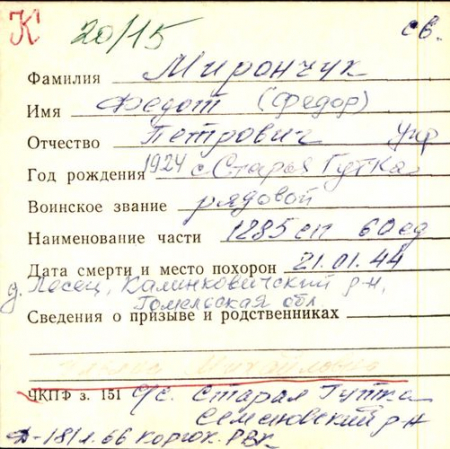 К 20/15 св.
Фамилия Мирончук
Имя Федот (Федор)
Отчество Петрович укр
Год рождения 1924 с. Старая Гутка
Воинское звание рядовой
Наименование части 1285 сп 60 сд
Дата смерти и место похорон 21.01.44
д. Лесец, Калинковичский р-н,
Гомельская обл
Сведения о призыве и родственниках
Михайловна
ЧКПФ з. 151 с/с. Старая Гутка
Семеновский р-н
Д-181 л. 66 Корюк. РВК